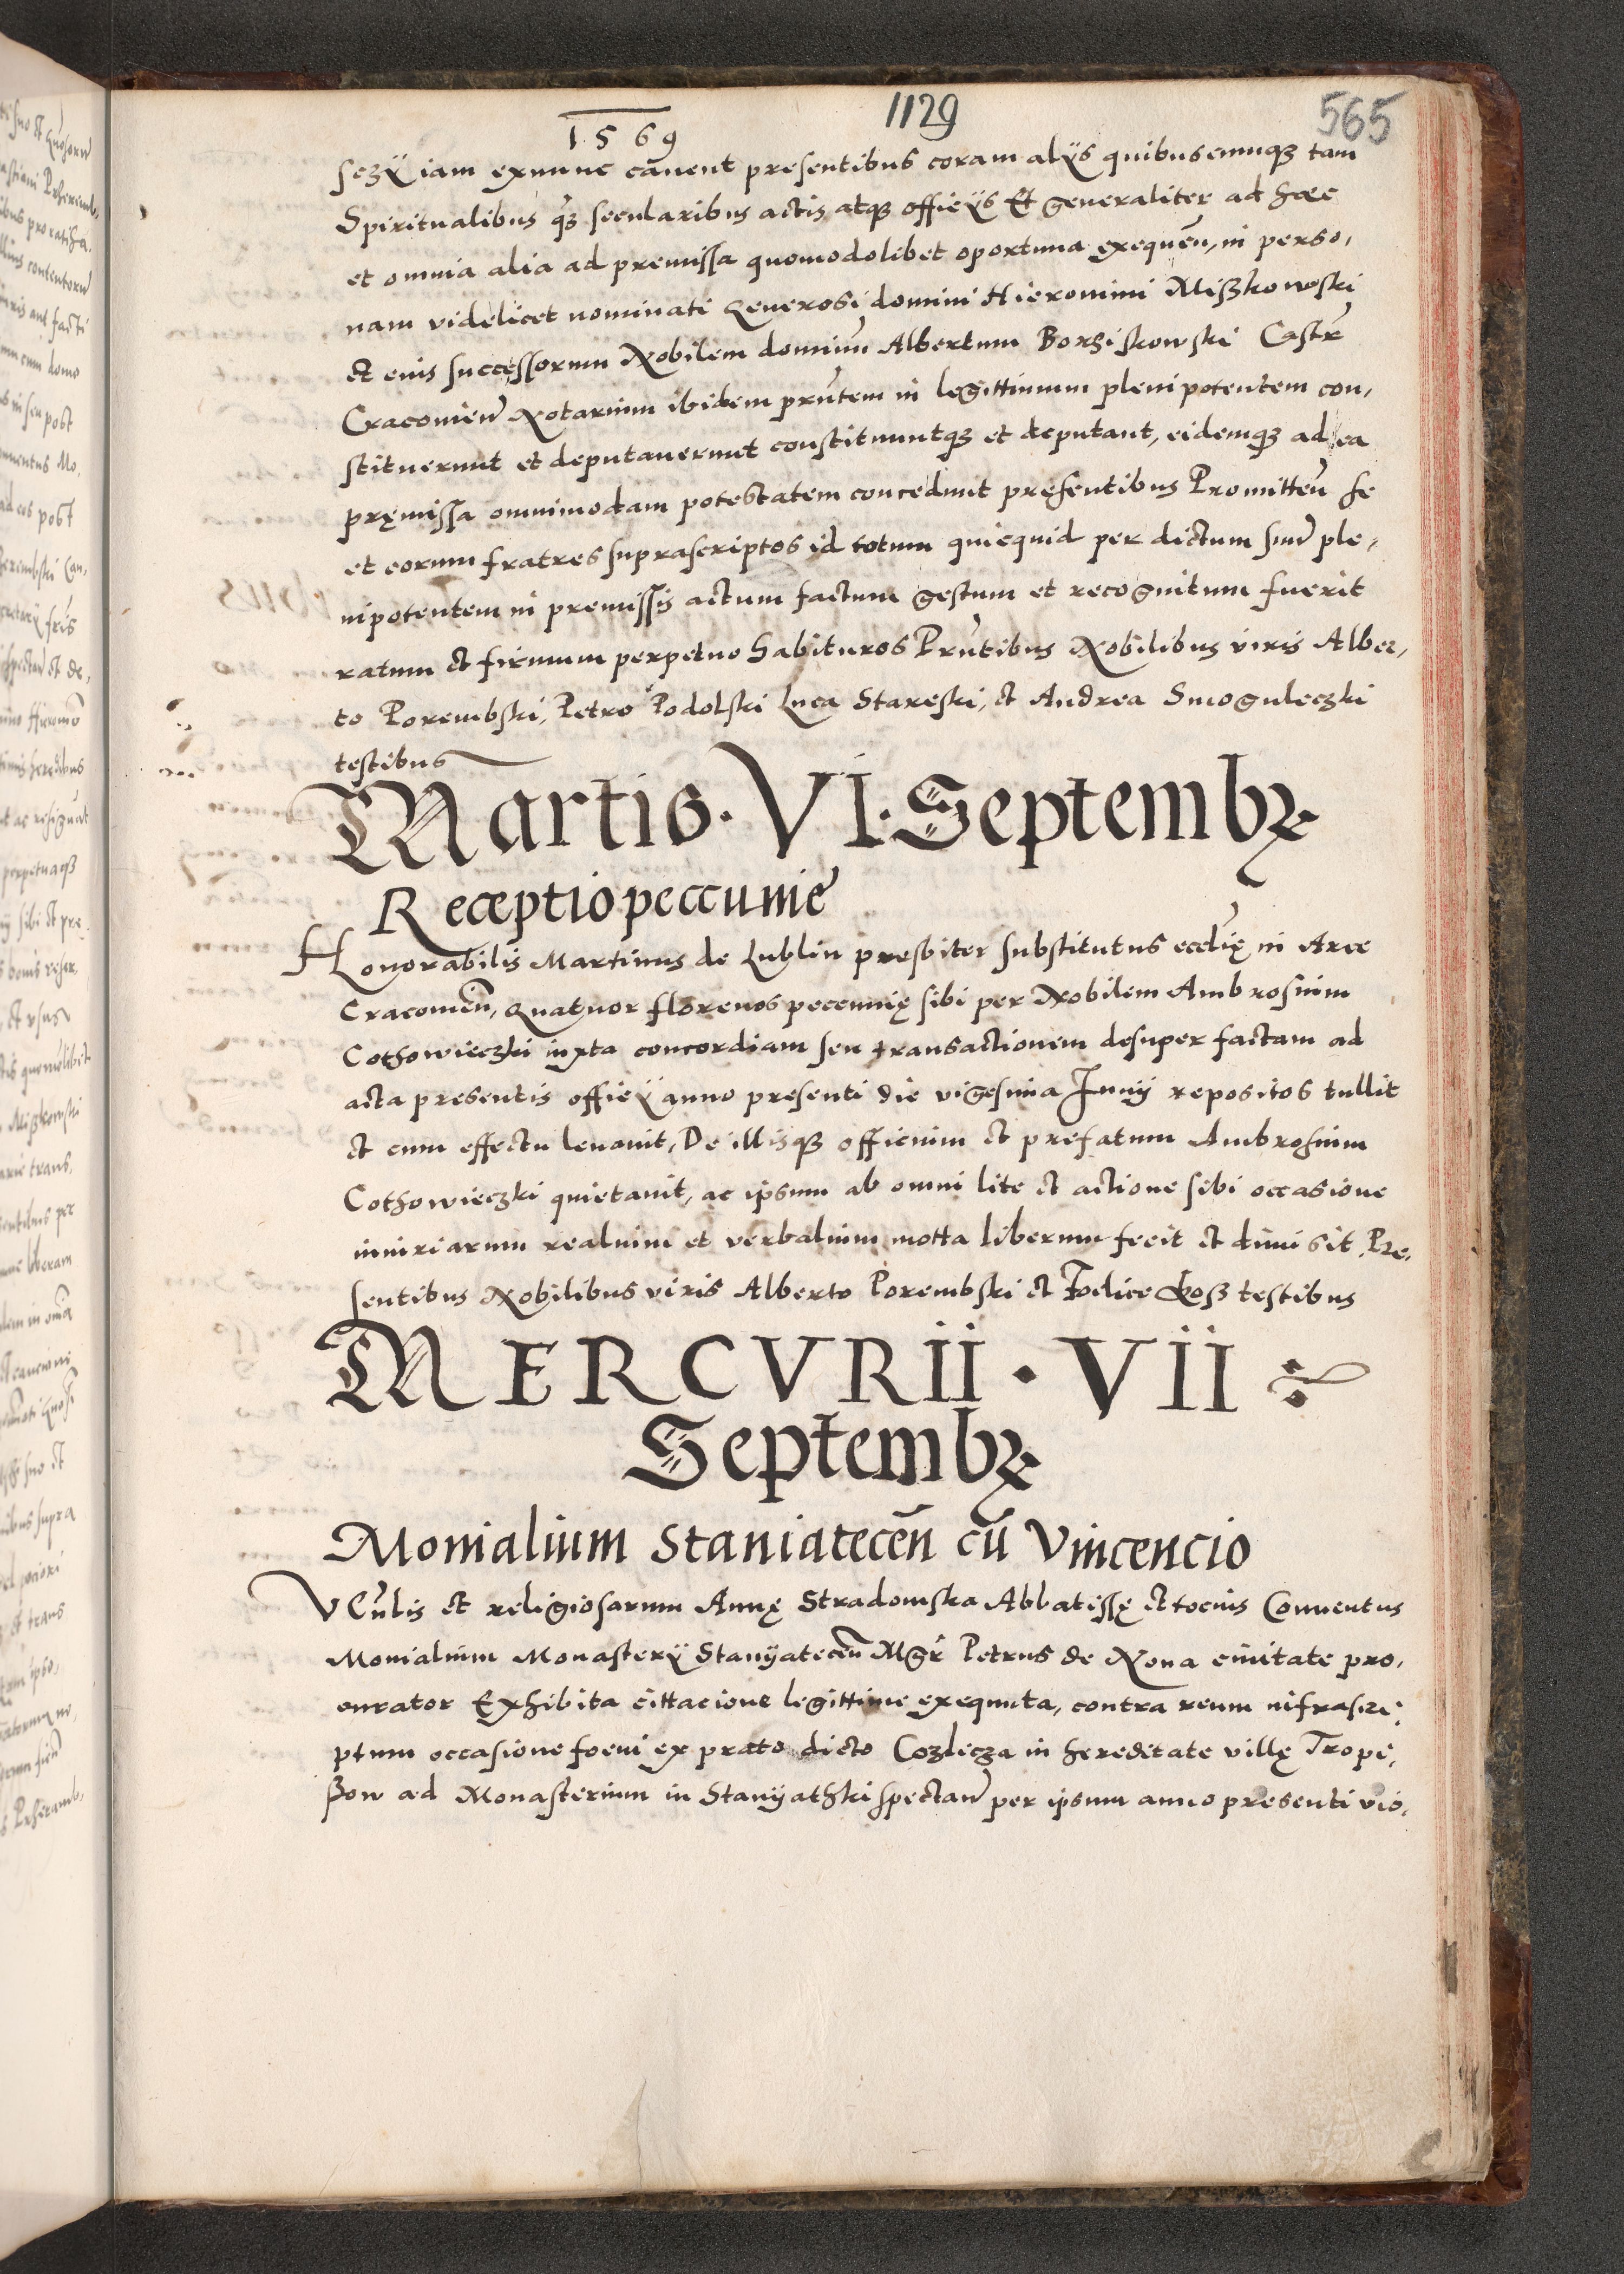 1569
1129
565
sezÿ iam exnunc cauent presentibus coram alÿs quibuscumqȝ tam
Spiritualibus q̄ȝ secularibus actis atqȝ officÿs Et generaliter ad haec
et omnia alia ad premissa quomodolibet oportuna exequēn, in perso,
nam videlicet nominati Generosi domini Hieronimi Mißkowski
et eius successorum Nobilem dominū Albertum Borziskowski Castrn̄
Cracouien̄ Notarium ibidem prn̄tem in legittimum plenipotentem con,
stituerunt et deputauerunt constituuntqȝ et deputant, eidemqȝ ad ea
pręmissa omnimodam potestatem concedunt pręsentibus Promitteñ se
et eorum fratres suprascriptos id totum quicquid per dictum suū ple,
nipotentem in premissis actum factum gestum et recognitum fuerit
ratum et firmum perpetuo habituros Prn̄tibus Nobilibus viris Alber,
to Porembski, Petro Podolski Luca Stareski, et Andrea Smoguleczki
testibus
Martis · VI · Septembꝝ
Receptio peccunie
Honorabilis Martinus de Lublin presbiter substitutus ecclīę in Arce
Cracouień, Quatuor florenos peccunię sibi per Nobilem Ambrosium
Cothowieczki iuxta concordiam seu transactionem desuper factam ad
acta presentis officÿ anno presenti die vigesima Junÿ repositos tullit
et cum effectu leuauit, De illisqȝ officium et prefatum Ambrosium
Cothowieczki quietauit, ac ipsum ab omni lite et actione sibi occasione
iniuriarum realium et verbalium motta liberum fecit et dimisit. Pre,
sentibus Nobilibus viris Alberto Porembski et Foelice Loß testibus
MERCVRII · VII
Septembꝝ
Monialium Staniatecēn cū Vincencio
Vēnlis et religiosarum Annę Stradomska Abbatissę et tocius Conuentus
Monialium Monasterÿ Stanÿatecēn Mgr̄ Petrus de Noua ciuitate pro,
curator Exhibita cittacione legittime exequuta, contra reum infrascri,
ptum occasione foeni ex prato dicto Cozlecza in hereditate villę Tropi,
ßow ad Monasterium in Stanÿathki spectan̄ per ipsum anno presenti vio,